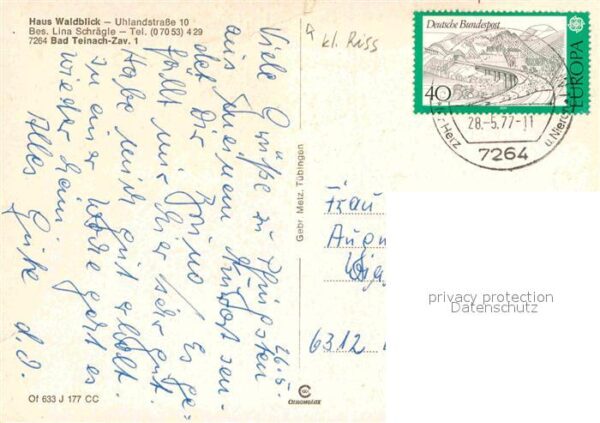 Haus Waldblick – Uhlandstraße 10
Bes. Lina Schrägle – Tel. (0 70 53) 4 29
7264 Bad Teinach-Zav. 1
Viele Grüße zu Pfingsten
aus meinem Kurort sen-
det Dir Es ge-
fällt mir hier sehr gut.
Habe mich gut erholt.
In einer Woche geht es
wieder heim.
Alles Gute
26.5.
kl. Riss
Deutsche Bundespost
40
EUROPA
28.-5.77-11
7264
Herz
u. Nieren
Gebr. Metz, Tübingen
Frau
Augu
6312
privacy protection
Datenschutz
Of 633 J 177 CC
CHROMOLUX